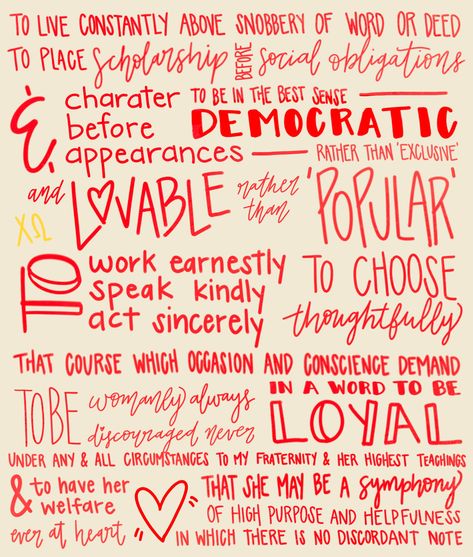 TO LIVE CONSTANTLY ABOVE SNOBBERY OF WORD OR DEED
TO PLACE scholarship BEFORE social obligations
& charater before appearances
TO BE IN THE BEST SENSE
DEMOCRATIC
RATHER THAN 'EXCLUSIVE'
and LOVABLE rather than 'POPULAR'
ΧΩ
TO work earnestly
speak kindly
act sincerely
TO CHOOSE
thoughtfully
THAT COURSE WHICH OCCASION AND CONSCIENCE DEMAND
TO BE womanly always
discouraged never
IN A WORD TO BE
LOYAL
UNDER ANY & ALL CIRCUMSTANCES TO MY FRATERNITY & HER HIGHEST TEACHINGS
& to have her
welfare
ever at heart
THAT SHE MAY BE A symphony
OF HIGH PURPOSE AND HELPFULNESS
IN WHICH THERE IS NO DISCORDANT NOTE